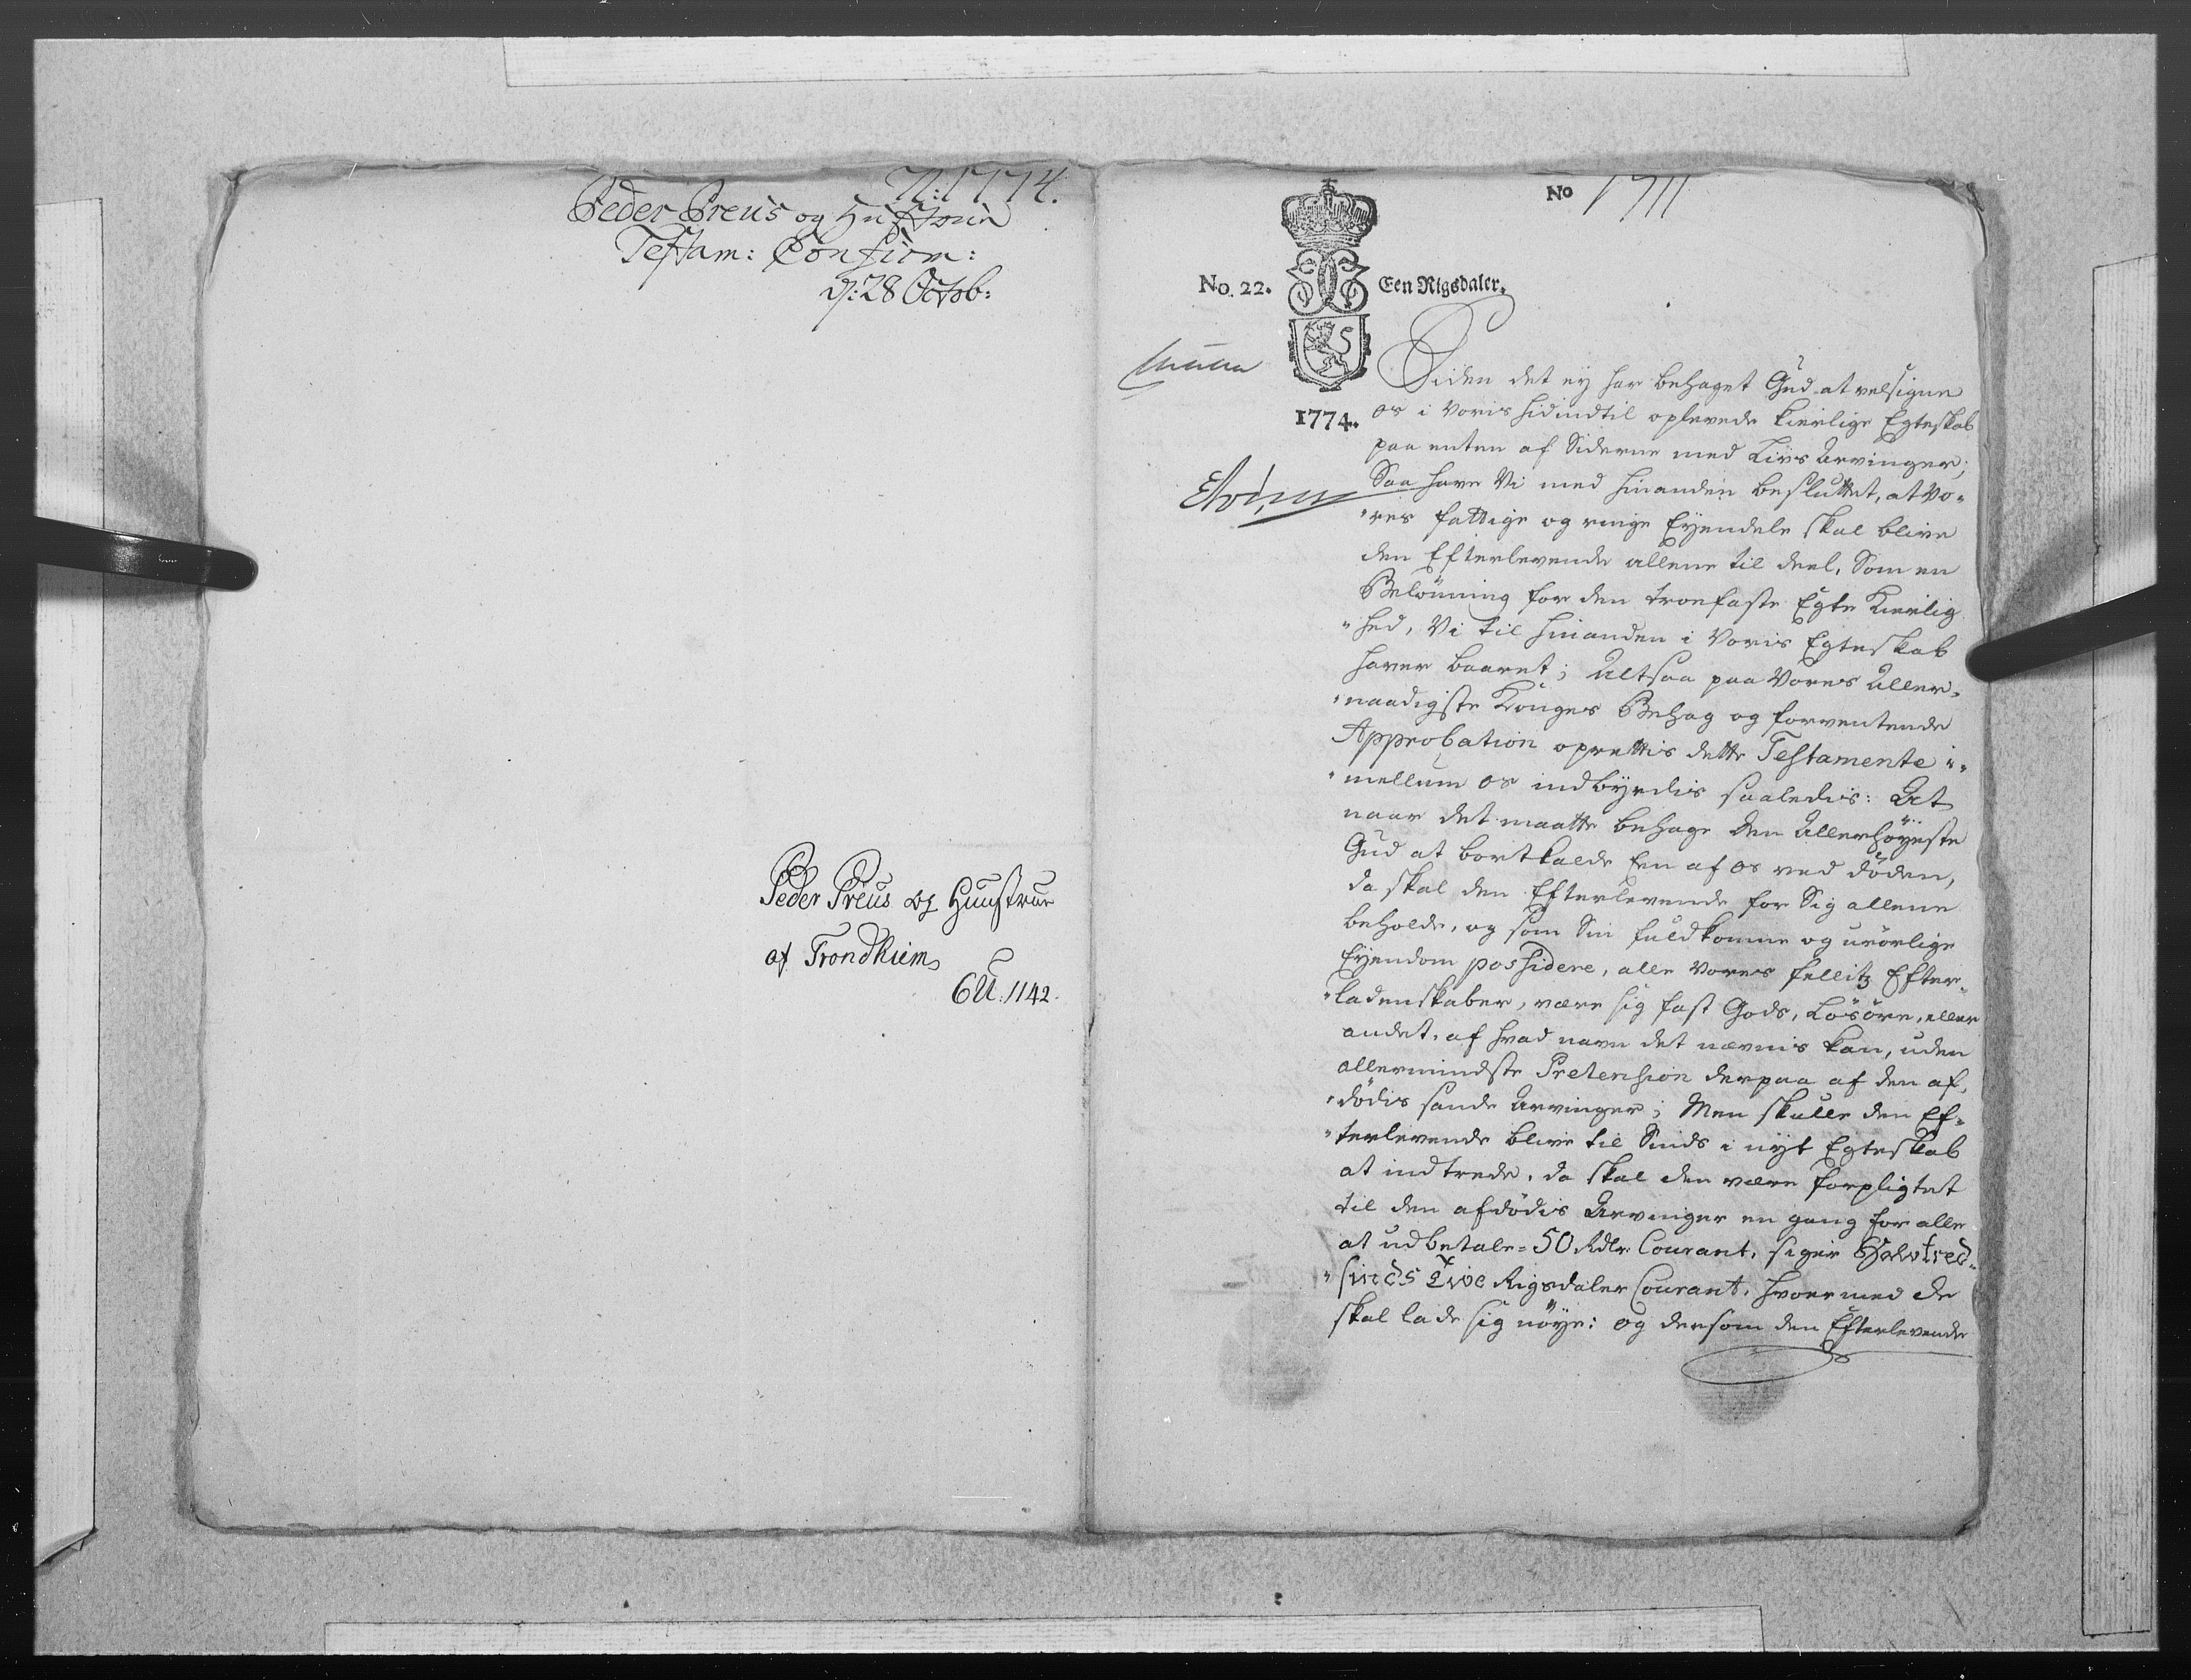 N: 1774.
Peder Preus og Hustrue
Testam: Confirm:
d: 28 Octob:
Peder Preus og Huustrue
af Trondhiem
6U: 1142.
No 1711
No. 22. Een Rigsdaler.
1774.
Siden det ey har behaget Gud at velsigne
os i voris hidindtil oplevede kierlige Egteskab
paa enten af Siderne med Livs Arvinger;
Saa have Vi med hinanden besluttet, at Vo-
"res fattige og ringe Eyendele skal blive
den Efterlevende allene til deel, Som en
Belönning for den troefaste Egte Kierlig
"hed, Vi til hinanden i Voris Egteskab
haver baaret; Altsaa paa Vores Aller-
"naadigste Konges Behag og forventende
Approbation oprettis dette Testamente i-
"mellum os indbyrdis saaledis: At
naar det maatte behage den Allerhöyeste
Gud at bortkalde Een af os ved döden,
da skal den Efterlevende for Sig allene
beholde, og som Sin fuldkomne og urörlige
Eyendom possidere, alle Vores fellitz Efter-
"ladenskaber, være sig fast Gods, Lösöre, eller
andet, af hvad navn det nævnis kan, uden
allermindste Pretension derpaa af den af-
"dödis sande Arvinger; Men skulle den Ef-
"terlevende blive til Sinds i nyt Egteskab
at indtrede, da skal den være forpligtet
til den afdödis Arvinger en gang for alle
at udbetale = 50 Rdlr Courant, siger Halvtred-
"sinds Tive Rigsdaler Courant, hvormed de
skal lade sig nöye: og dersom den Efterlevende